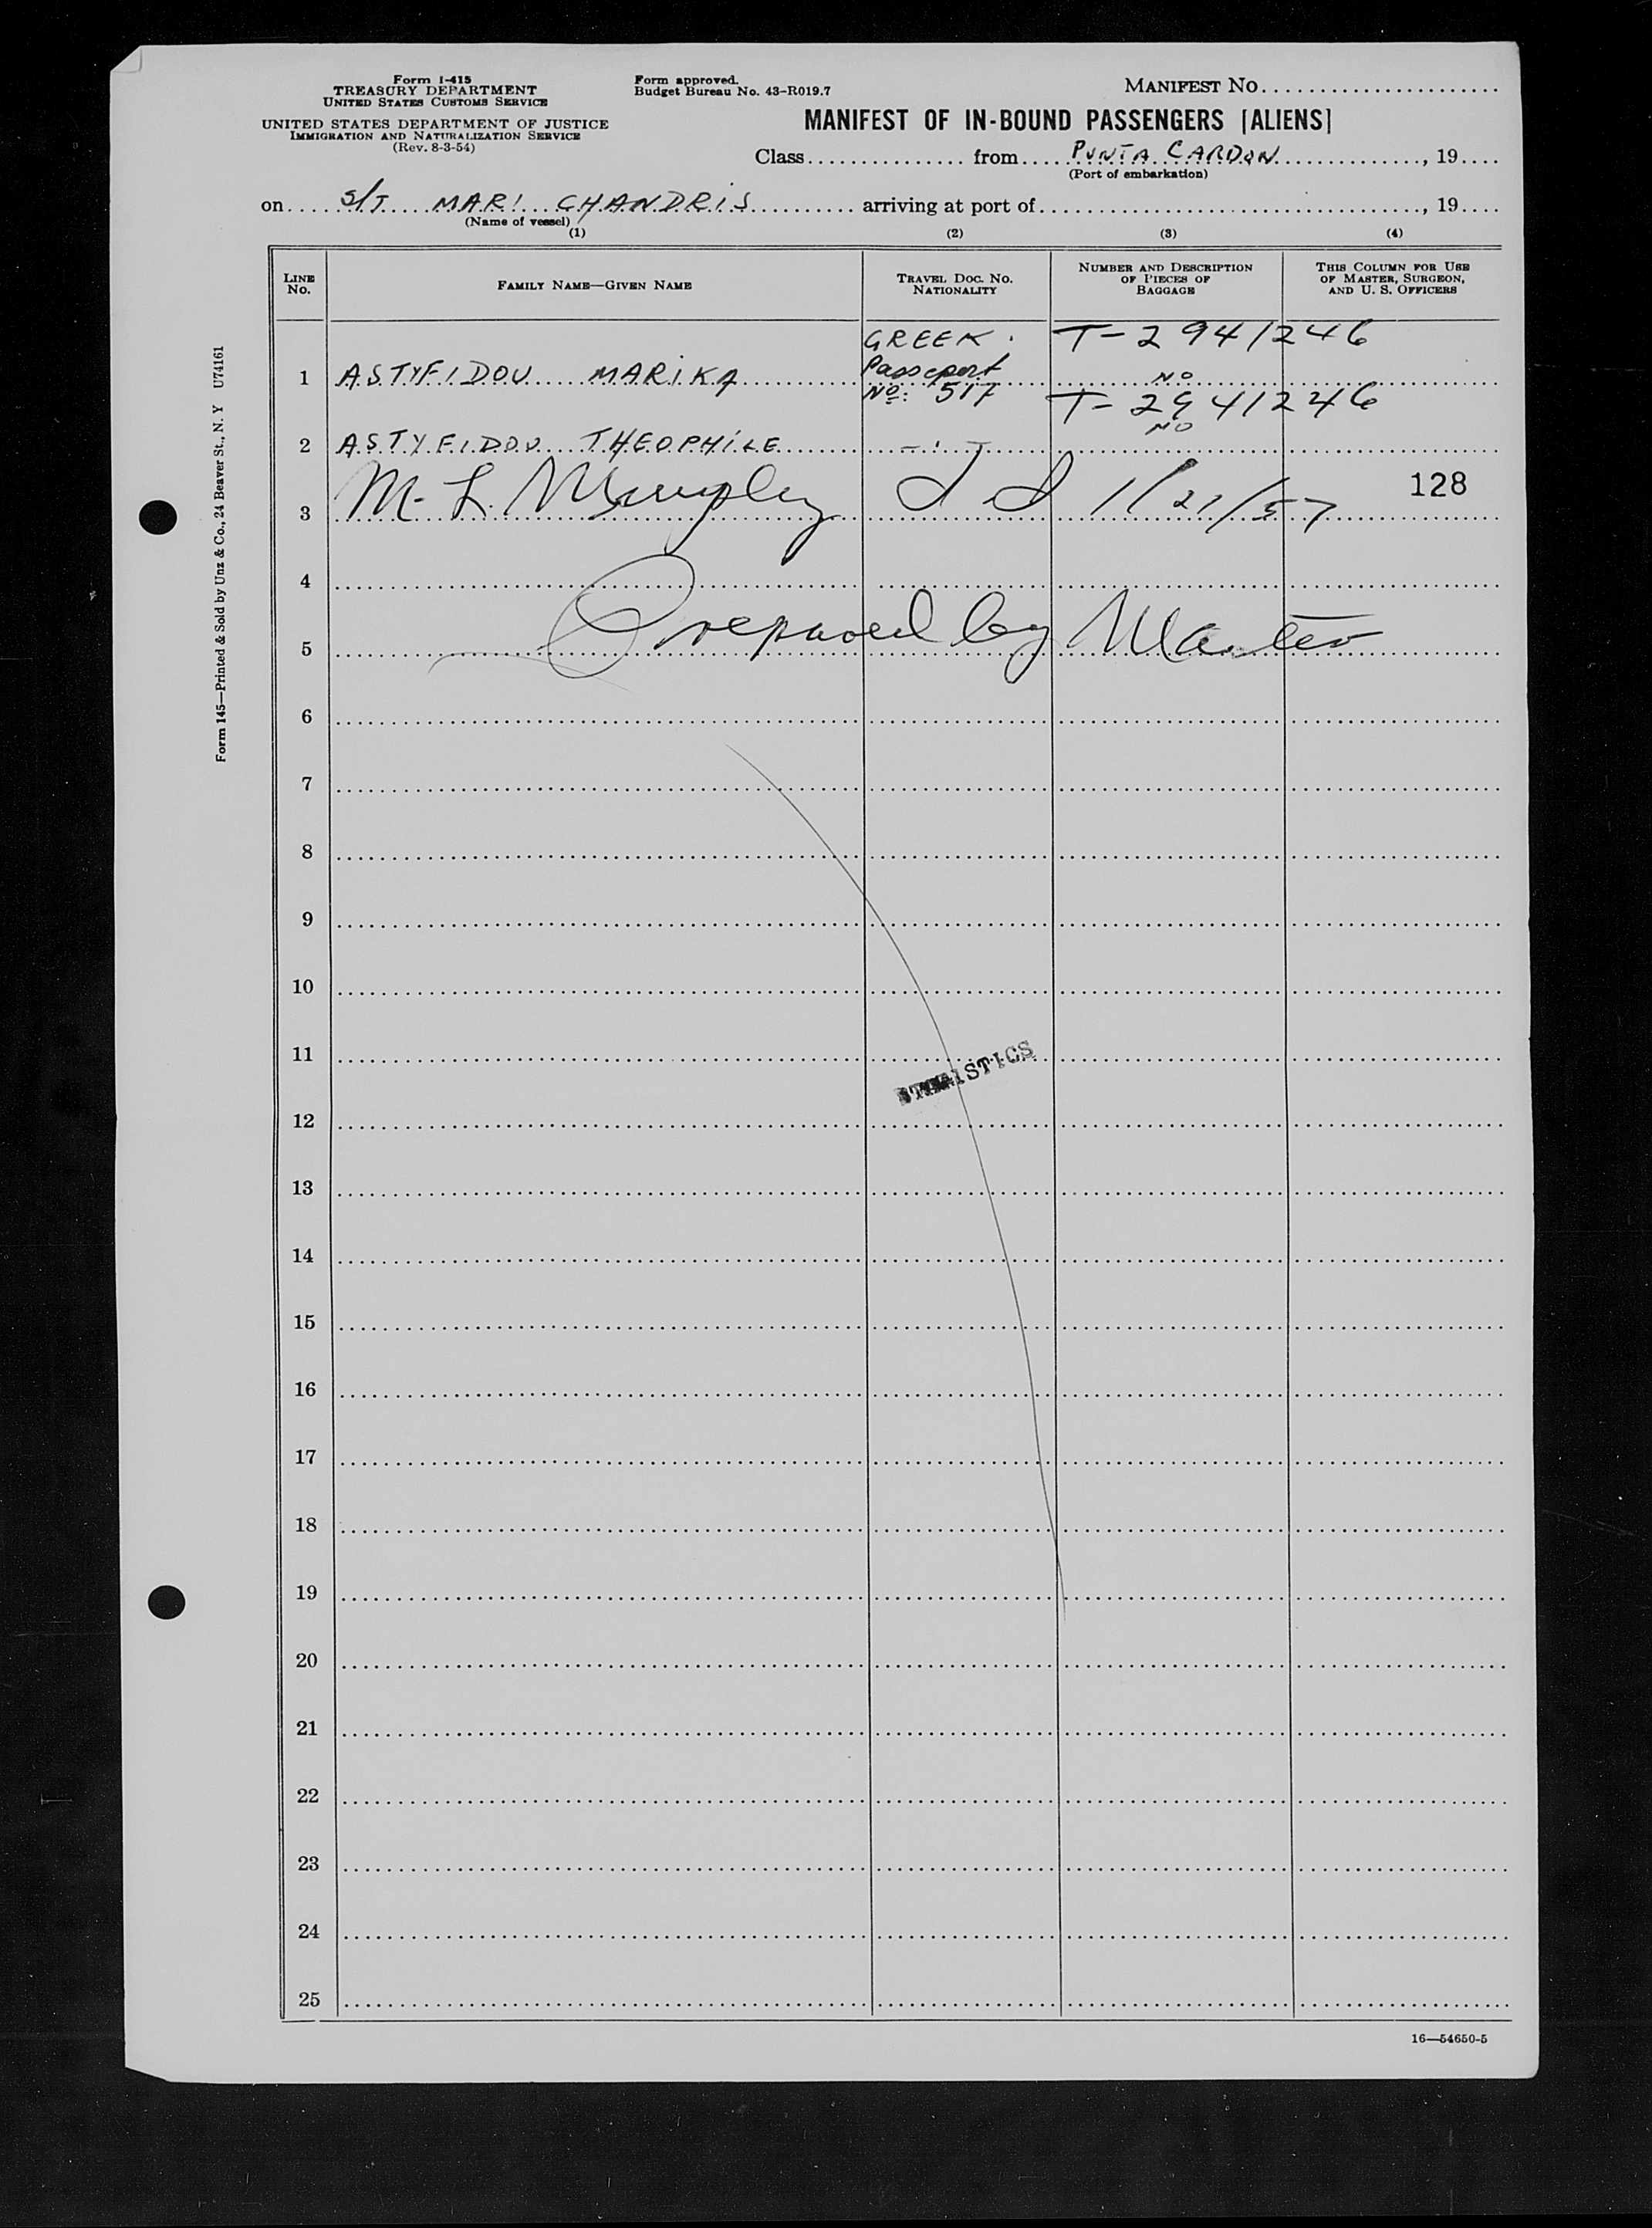 Form I-415
TREASURY DEPARTMENT
UNITED STATES CUSTOMS SERVICE
UNITED STATES DEPARTMENT OF JUSTICE
IMMIGRATION AND NATURALIZATION SERVICE
(Rev. 8-3-54)
Form approved.
Budget Bureau No. 43-R019.7
MANIFEST NO.
MANIFEST OF IN-BOUND PASSENGERS [ALIENS]
Class from PUNTA CARDON, 19
(Port of embarkation)
on S/T MARI CHANDRIS arriving at port of , 19
(Name of vessel)
(1) (2) (3) (4)
LINE NO. FAMILY NAME—GIVEN NAME TRAVEL DOC. NO. NATIONALITY NUMBER AND DESCRIPTION OF PIECES OF BAGGAGE THIS COLUMN FOR USE OF MASTER, SURGEON, AND U. S. OFFICERS
GREEK. T-2941246
1 ASTYFIDOU MARIKA Passeport NO
No: 517 T-2941246
2 ASTYFIDOU THEOPHILE NO
3 M. L. 1/21/57 128
4
5 Prepared by Master
6
7
8
9
10
11 STATISTICS
12
13
14
15
16
17
18
19
20
21
22
23
24
25
16—54650-5
Form 145—Printed & Sold by Unz & Co., 24 Beaver St., N. Y U74161